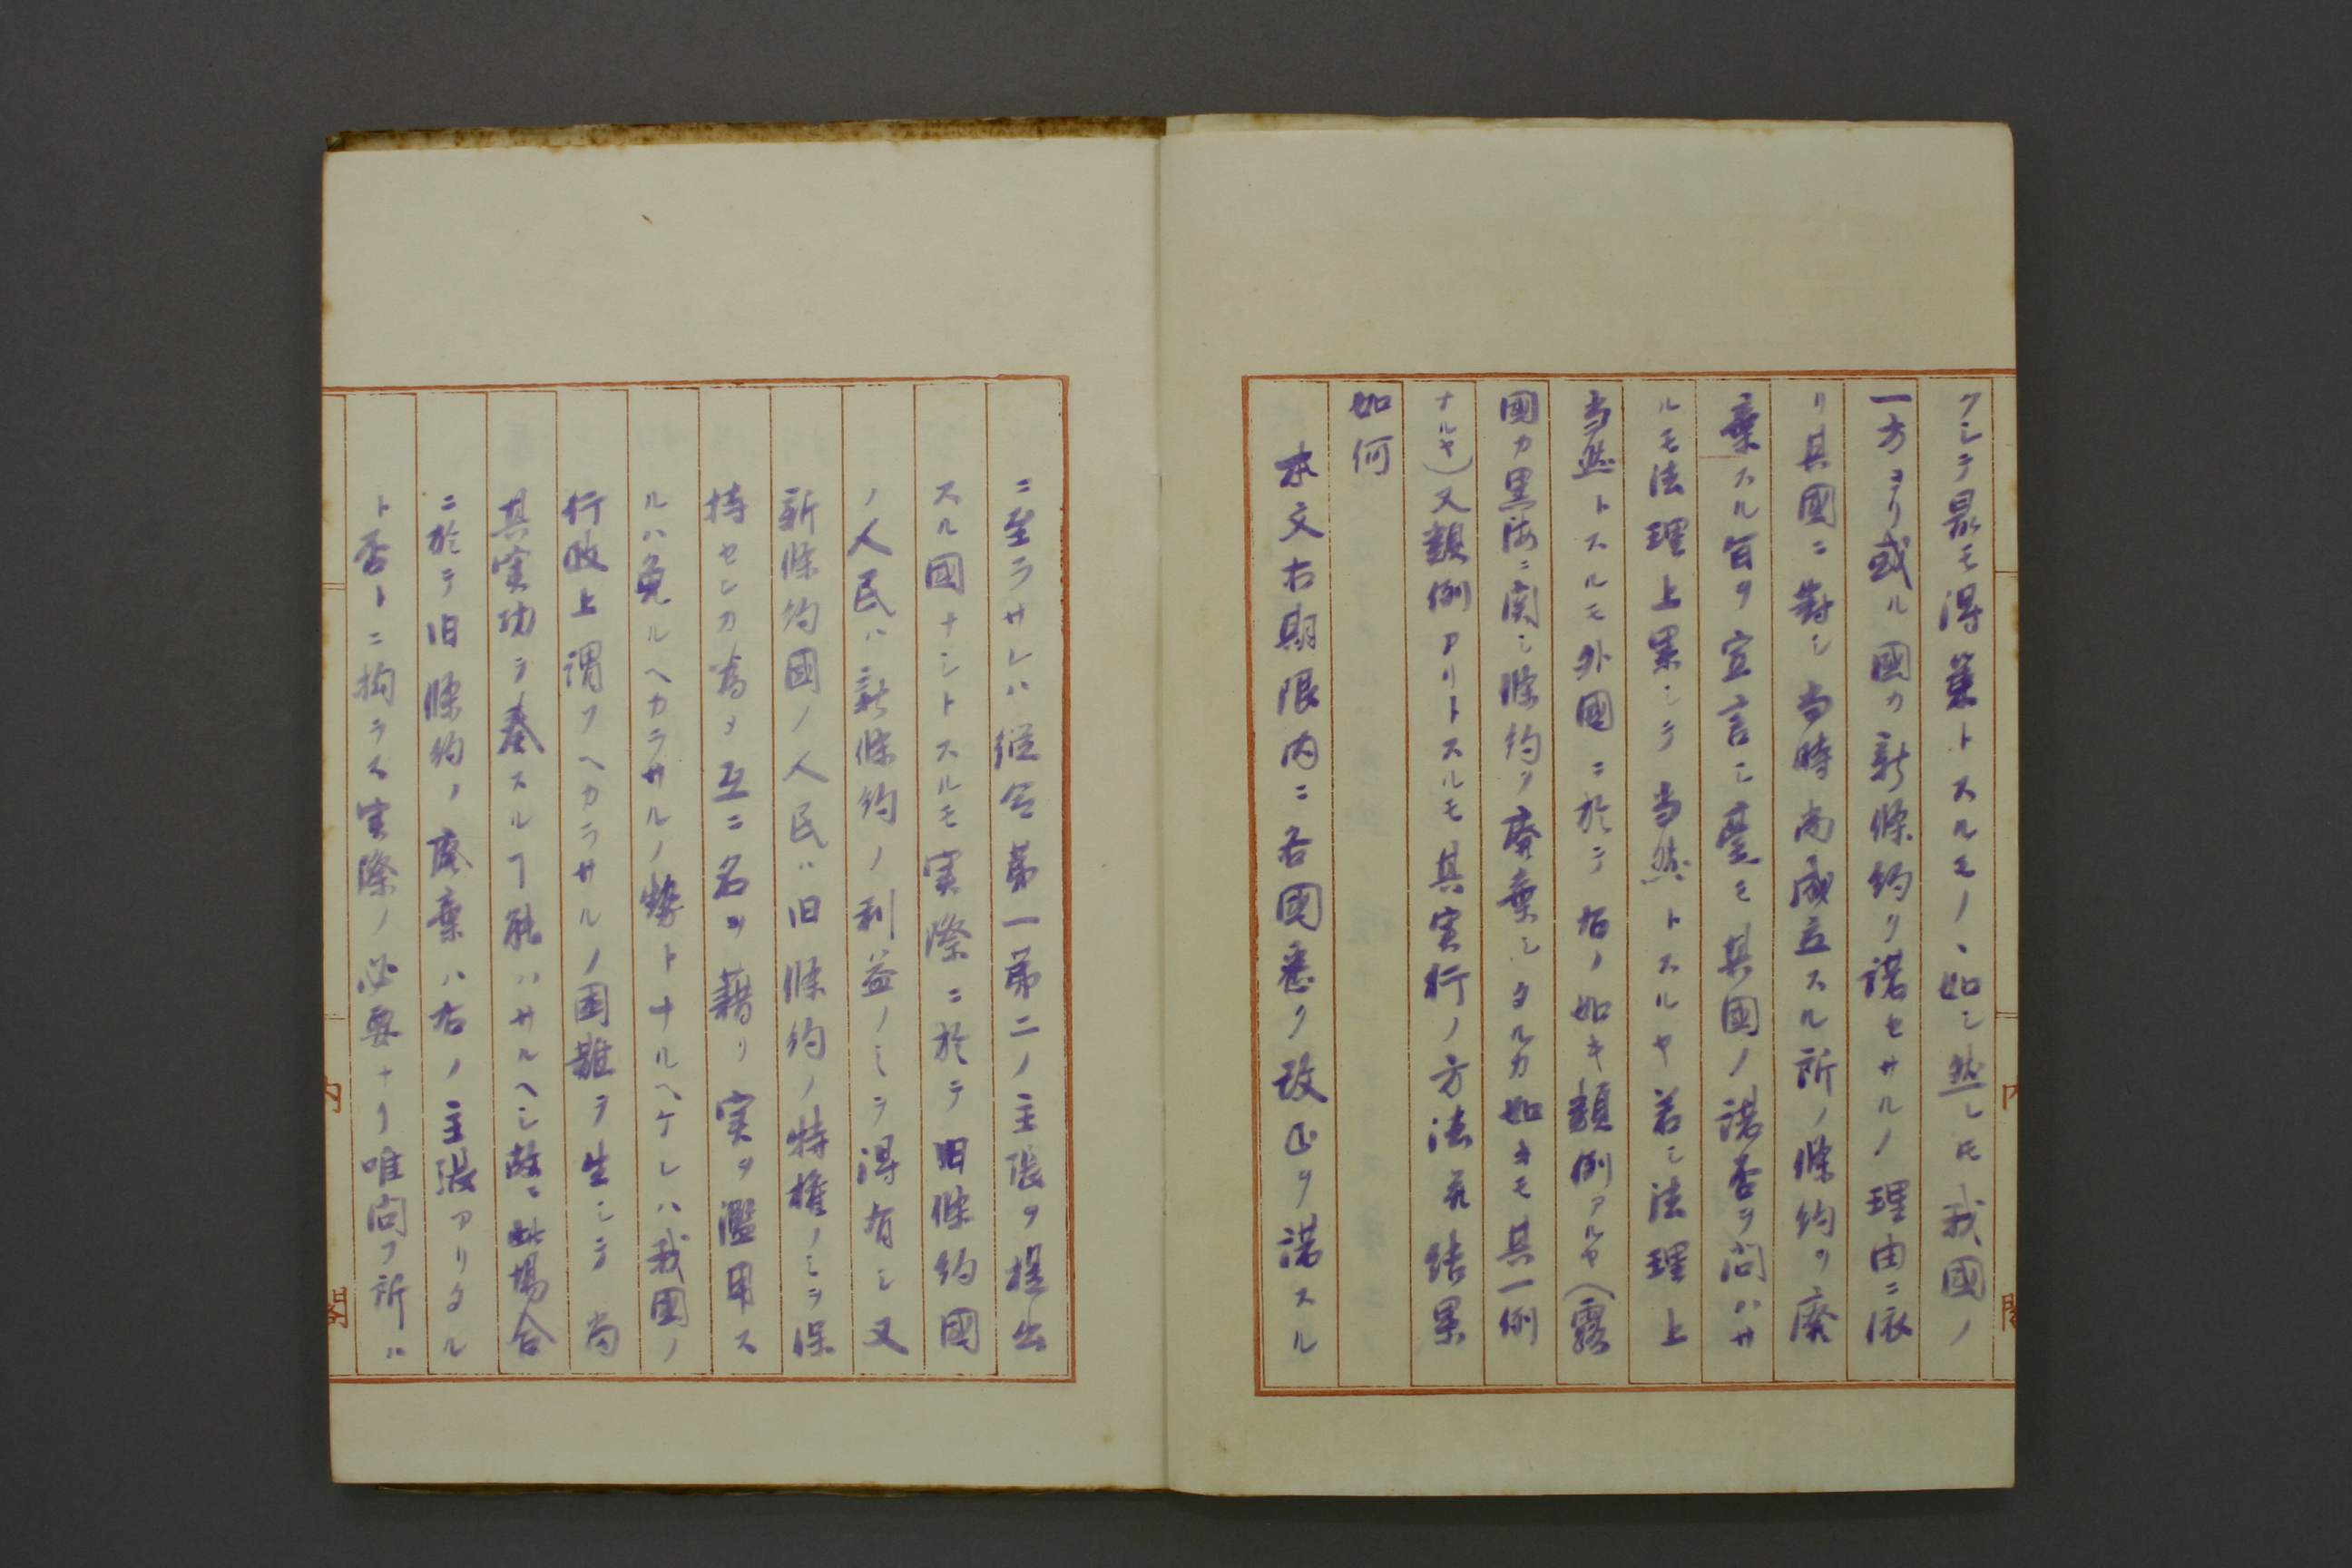 クシテ最モ得策トスルモノヽ如シ然レ𪜈我國ノ
一方ヨリ或ル國カ新條約ヲ諾セサルノ理由ニ依
リ其國ニ對シ當時尚成立スル所ノ條約ヲ廃
棄スル旨ヲ宣言シ毫モ其國ノ諾否ヲ問ハサ
ルモ法理上果シテ当然トスルヤ若シ法理上
当然トスルモ外國ニ於テ右ノ如キ類例アルヤ(露
國カ黒海ニ関シ條約ヲ廃棄シタルカ如キモ其一例
ナルヤ)又類例アリトスルモ其実行ノ方法並結果
如何
本文右期限内ニ各國悉ク改正ヲ諾スル
ニ至ラサレハ縦令第一第二ノ主張ヲ提出
スル國ナシトスルモ実際ニ於テ旧條約國
ノ人民ハ新條約ノ利益ノミヲ得有シ又
新條約國ノ人民ハ旧條約ノ特権ノミヲ保
持センカ為メ互ニ名ヲ藉リ実ヲ濫用ス
ルハ免ルヘカラサルノ勢トナルヘケレハ我國ノ
行政上謂フヘカラサルノ困難ヲ生シテ尚
其実功ヲ奏スルヿ能ハサルヘシ故ニ此場合
ニ於テ旧條約ノ廃棄ハ右ノ主張アリタル
ト否トニ拘ラス実際ノ必要ナリ唯問フ所ハ
内
閣
内
閣